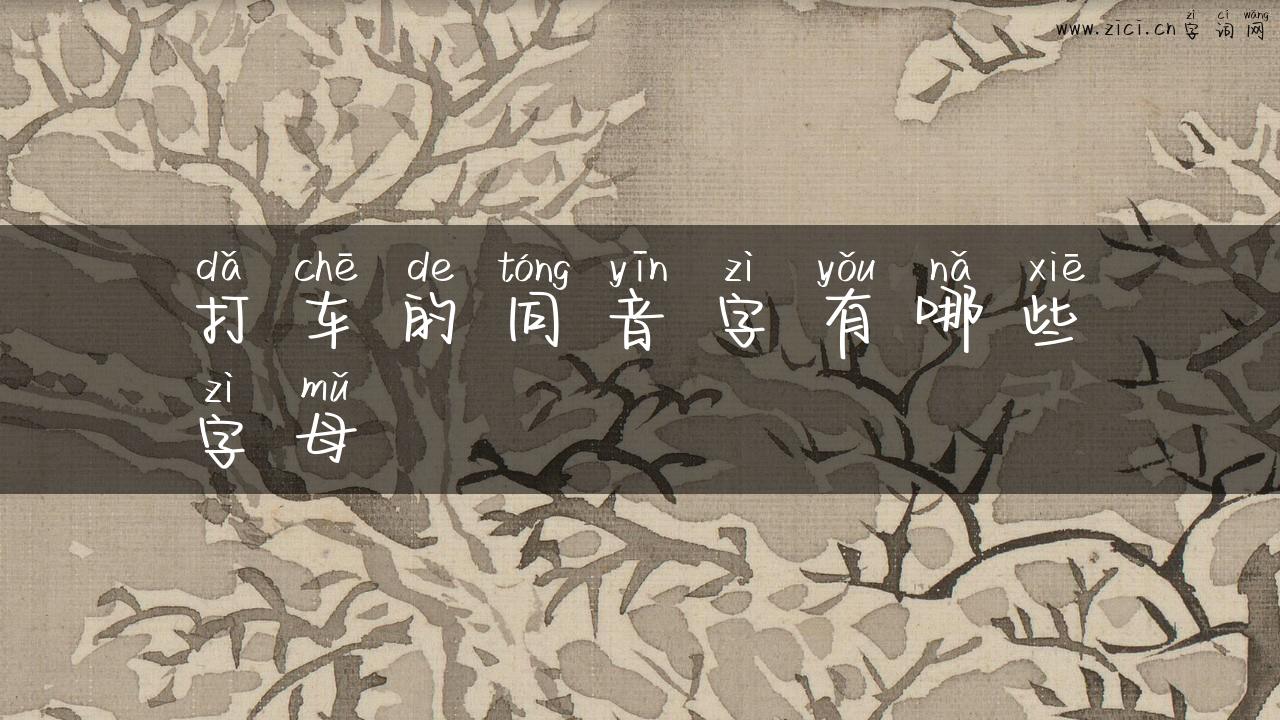 zì cí wǎng
www.zici.cn字词网
dǎ chē de tóng yīn zì yǒu nǎ xiē
打车的同音字有哪些
zì mǔ
字母